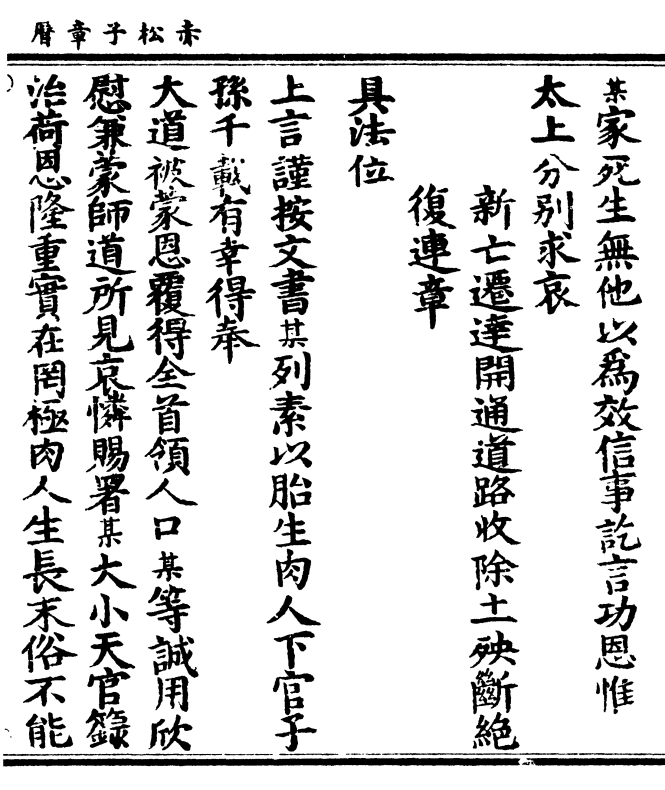 赤松子章曆
某家死生無他以爲效信事訖言功恩惟
太上分別求哀
新亡遷達開通道路收除土殃斷絕
復連章
具法位
上言謹按文書某列素以胎生肉人下官子
孫千載有幸得奉
大道被蒙恩覆得全首領人口某等誠用欣
慰兼蒙師道所見哀憐賜署某大小天官籙
治荷恩隆重實在罔極肉人生長末俗不能